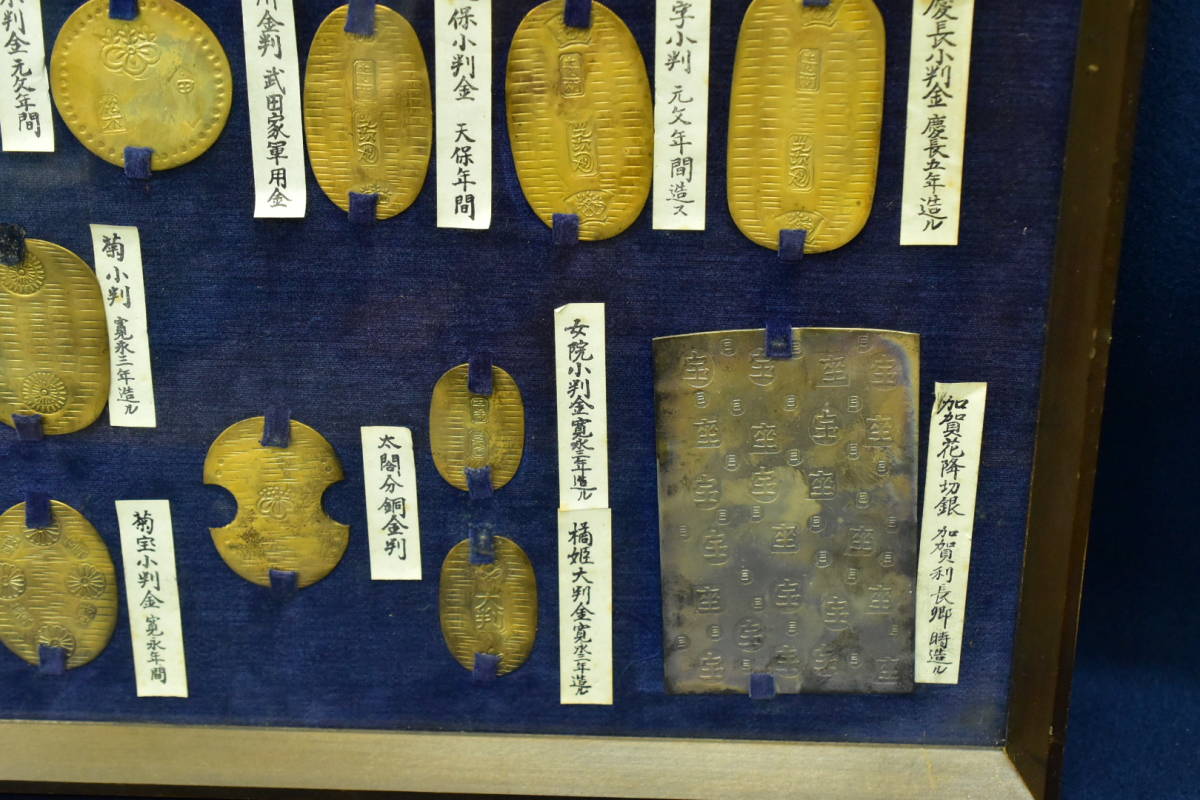 慶長小判金 慶長五年造ル
字小判 元文年間造ス
保小判金 天保年間
金判 武田家軍用金
小判金 元文年間
加賀花降切銀 加賀利長卿時造ル
女院小判金寛永三年造ル
橘姫大判金寛永三年造ル
大判
太閤分銅金判
菊小判 寛永三年造ル
菊宝小判金 寛永年間